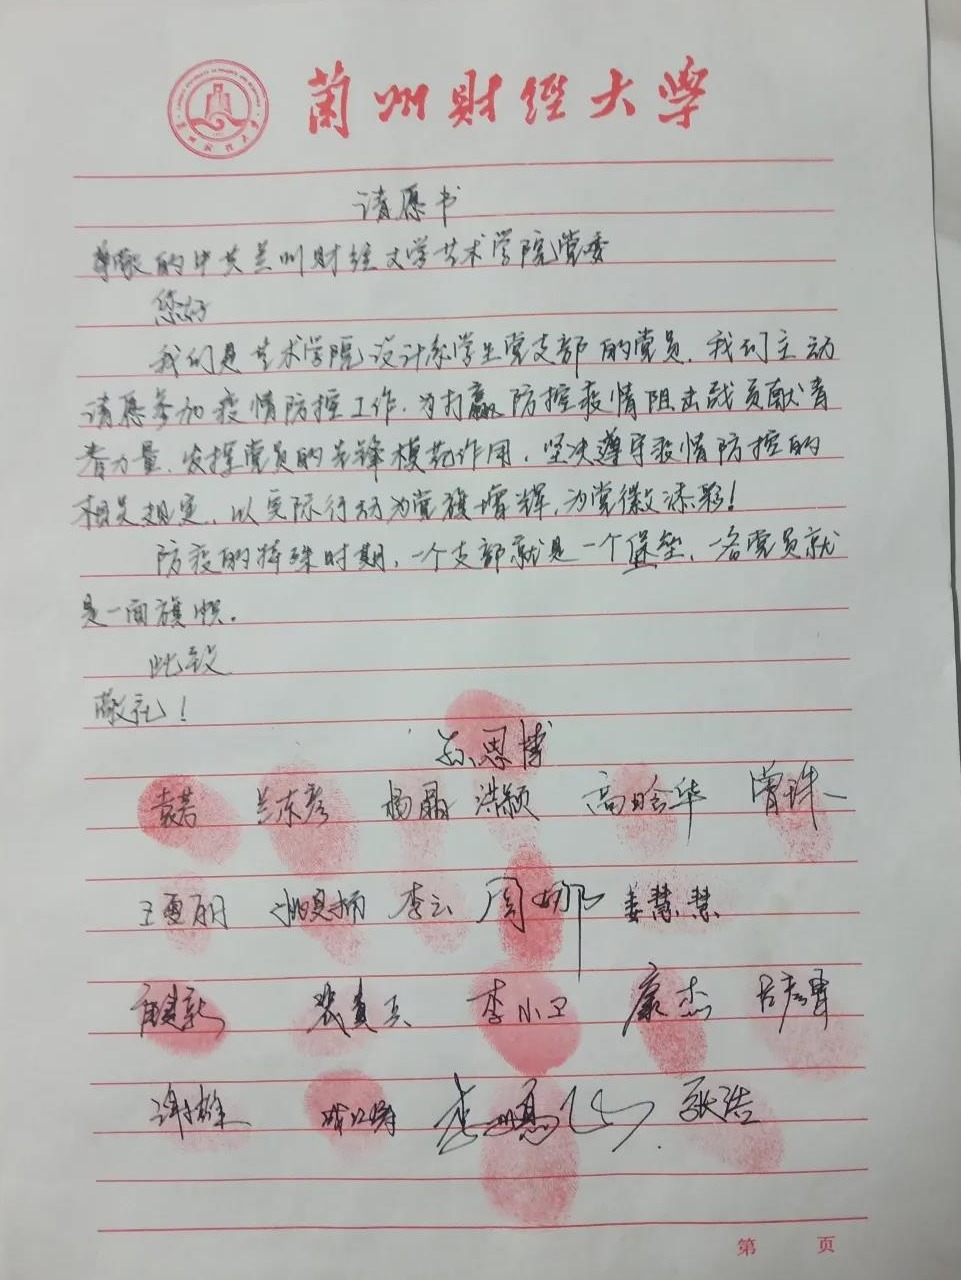 兰州财经大学
请愿书
尊敬的中共兰州财经大学艺术学院党委
您好
我们是艺术学院设计系学生党支部的党员，我们主动
请愿参加疫情防控工作，为打赢防控疫情阻击战贡献青
春力量，发挥党员的先锋模范作用，坚决遵守疫情防控的
相关规定，以实际行动为党旗增辉，为党徽添彩！
防疫的特殊时期，一个支部就是一个堡垒，一名党员就
是一面旗帜。
此致
敬礼！
孙恩博
袁芳 兰东彦 杨晶 洪颖 高晗华 曾珠
李云 周娜 姜慧慧
李小卫 康杰
张浩
第 页